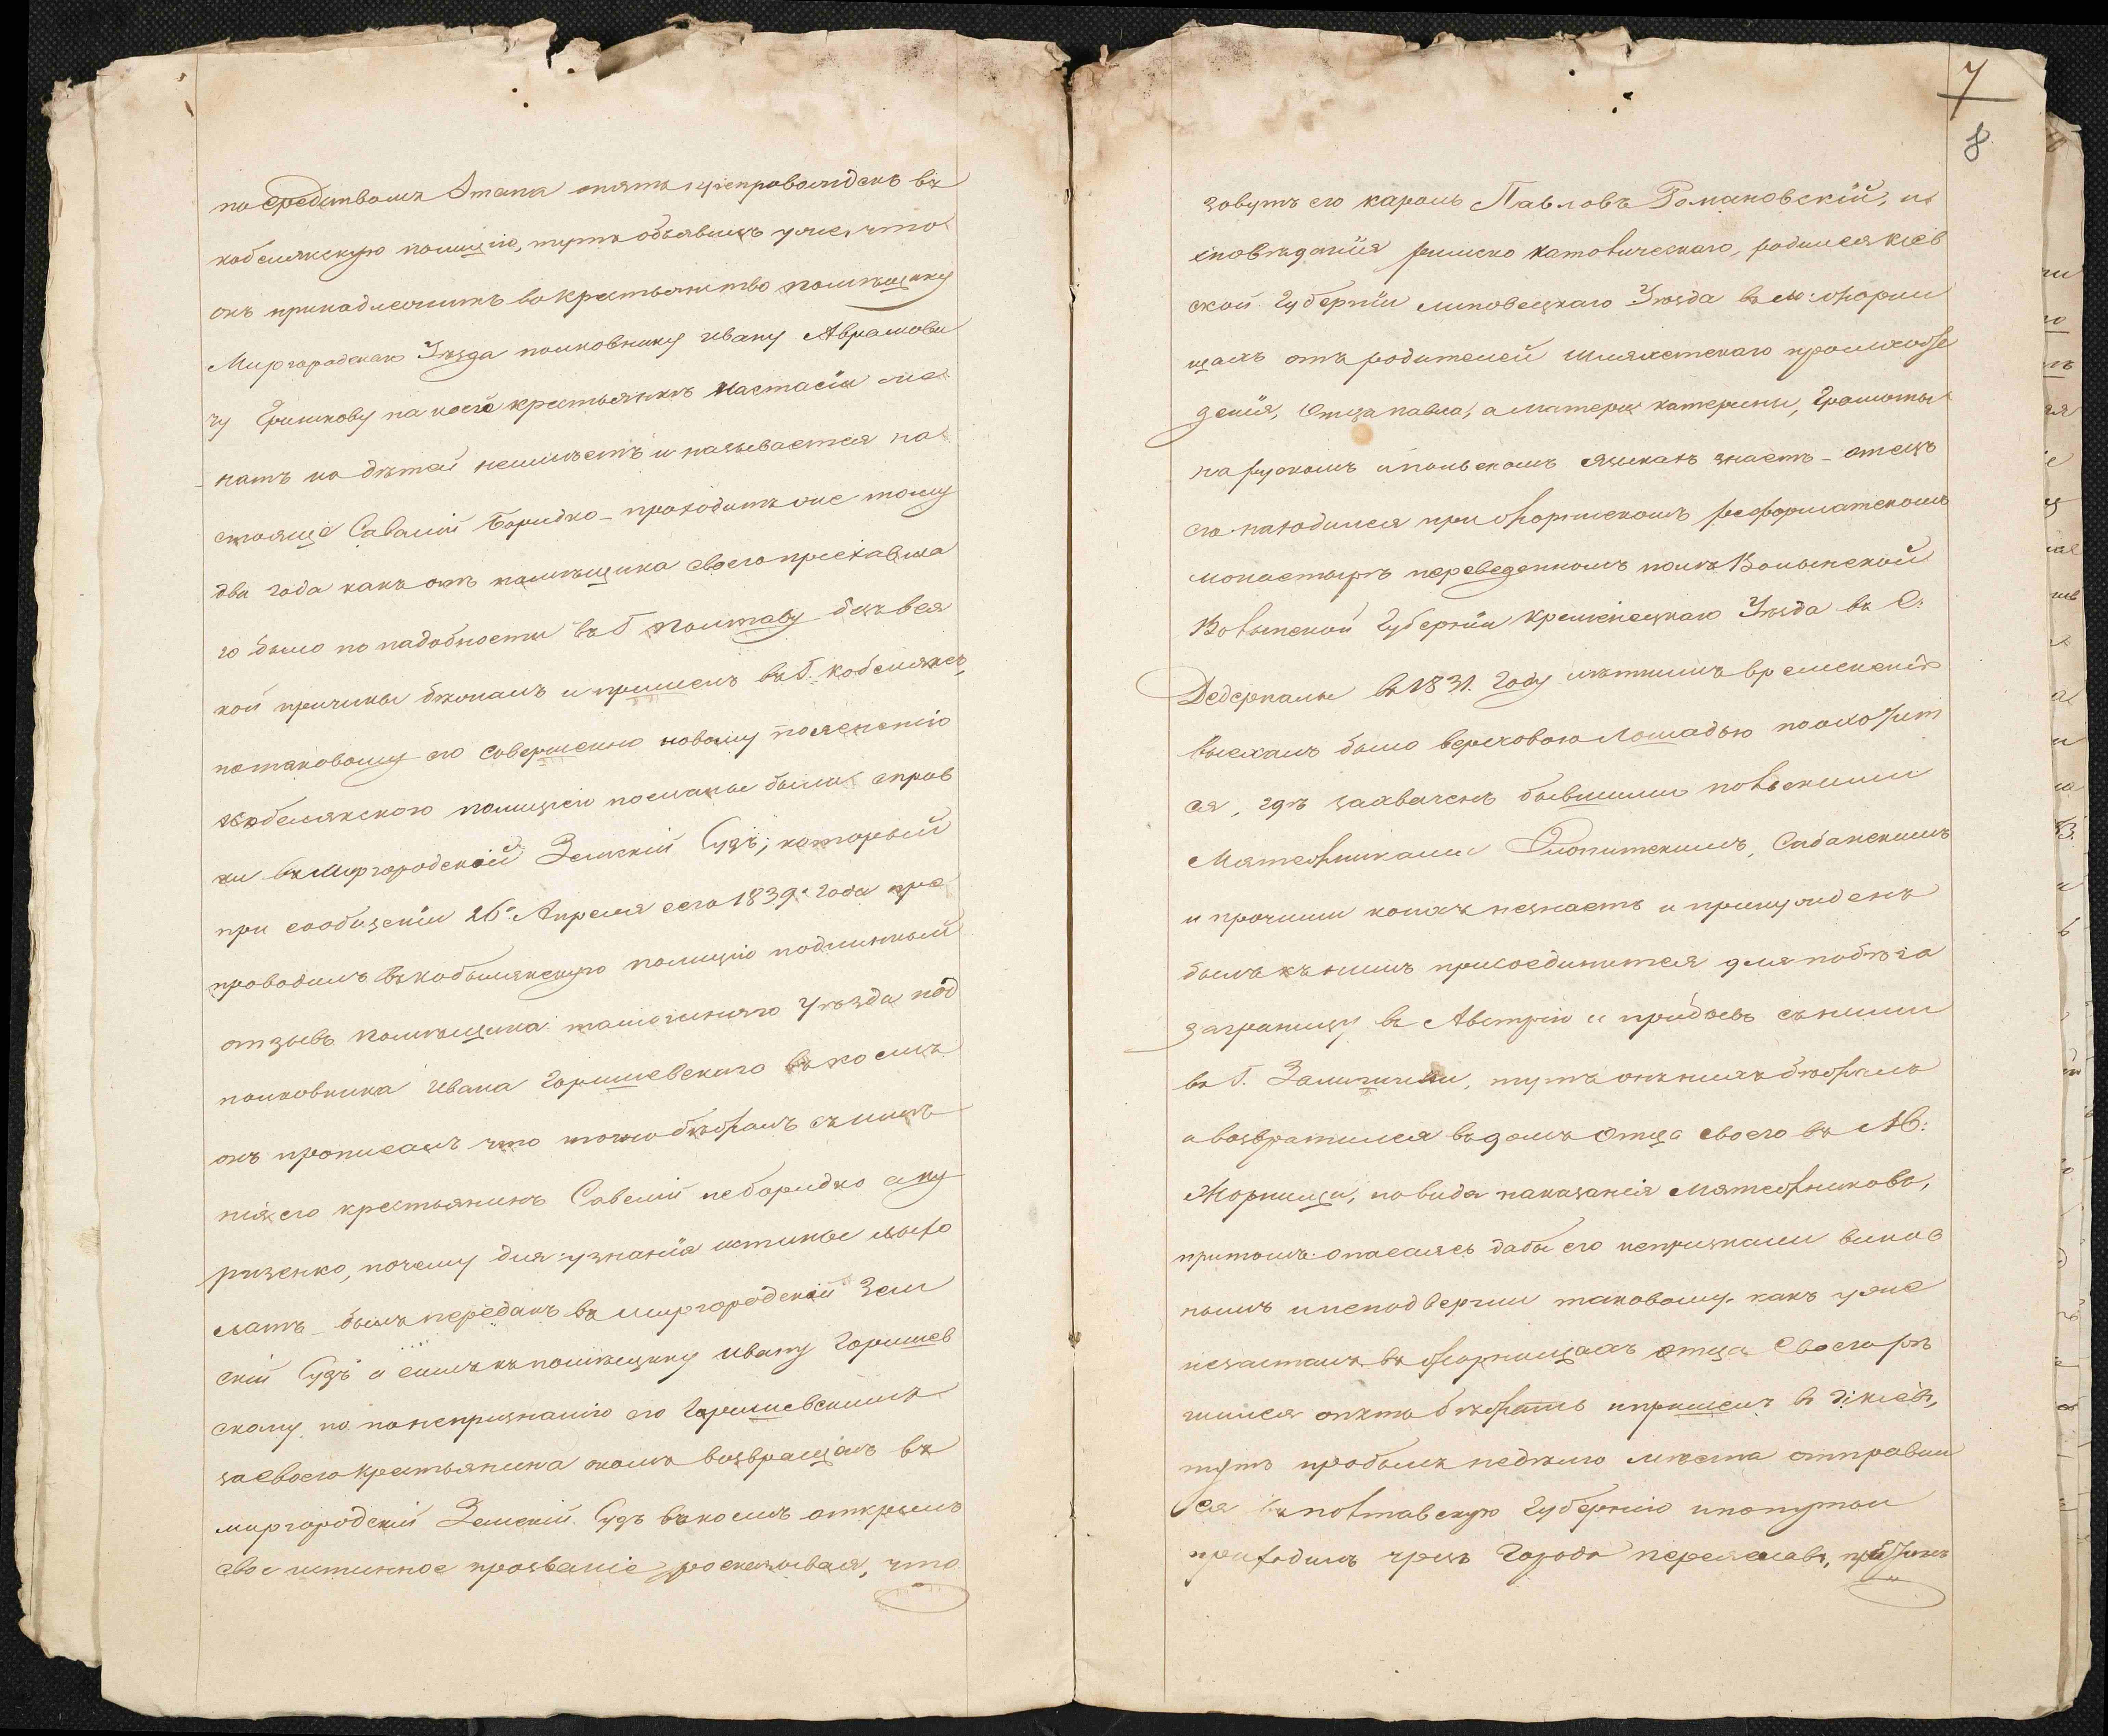 посредствомъ Этапа опять препровожденъ въ
кобелякскую полицію, тутъ объявилъ уже, что
онъ принадлежитъ во крестьянство помѣщику
Миргородскаго Уѣзда полковнику Ивану Аврамови
чу на коего крестьянкѣ Настасіи же
натъ но дѣтей неимѣетъ и называется на
стояще Савелий Боридко – проходитъ уже тому
два года какъ отъ помѣщика своего приехавша
го было по надобности въ Г. Полтаву безъ вся
кой причины бежалъ и пришелъ въ Г. Кобеляки,
потаковому его совершенно новому поясненію
кобелякскою полициею посланы были справ
ки въ Миргородский Земский Судъ; который
при сообщеніи 26.го Апреля сего 1839.го года пре
проводилъ въ кобылякскую полицію подлинный
отзывъ помѣщика тамошняго Уѣзда под
полковника Ивана Горишевского въ коемъ
онъ прописалъ что точно бѣжалъ съ имѣ
нія его крестьянинъ Савелий не боридко а ку
ризенко, почему для узнанія истины
былъ переданъ въ миргородский Зем
ский Судъ а симъ къ помѣщику Ивану Горишев
скому, но по непризнанію его Горишевскимъ
за своего крестьянина онымъ возвращенъ въ
миргородский Земский Судъ въ коемъ открылъ
свое истинное прозваніе росказывая, что
7
8
зовутъ его кароль Павловъ Романовский, и
споведанія римско католическаго, родился Киев
ской Губерніи липовецкаго Уѣзда въ м: Жорни
щахъ отъ родителей шляхетскаго происхожде
дения, Отца павла, а матери катерины, Грамоты
на рускомъ и польскомъ языкахъ знаетъ – отецъ
его находился при Жорнискомъ реформатскомъ
монастырѣ переведенномъ Волынской
Волынской Губерніи кременецкаго Уѣзда въ С:
Дедеркалы въ 1831. Году лѣтнимъ временемъ
выехалъ было верховою Лошадью поохотит
ся, гдѣ захваченъ бывшими польскими
Мятежниками Сабанскимъ
и прочими коихъ незнаетъ и принужденъ
былъ къ нимъ присоединится для побѣга
заграницу въ Австрію и прибывъ съ ними
въ Г. тутъ онъ нихъ бѣжалъ
а возвратился въ домъ Отца своего въ М:
Жорнищи, но видя наказанія Мятежниковъ,
притомъ опасаясь дабы его непризнали винов
нымъ и неподвергли таковому. какъ уже
незасталъ въ Жорнищахъ отца Своего рѣ
шился опять бѣжать и пришелъ въ Г: Киевъ,
тутъ пробылъ неделю мѣста отправил
ся въ полтавскую Губернію и попутьи
приходилъ чрезъ Городъ переяславъ,